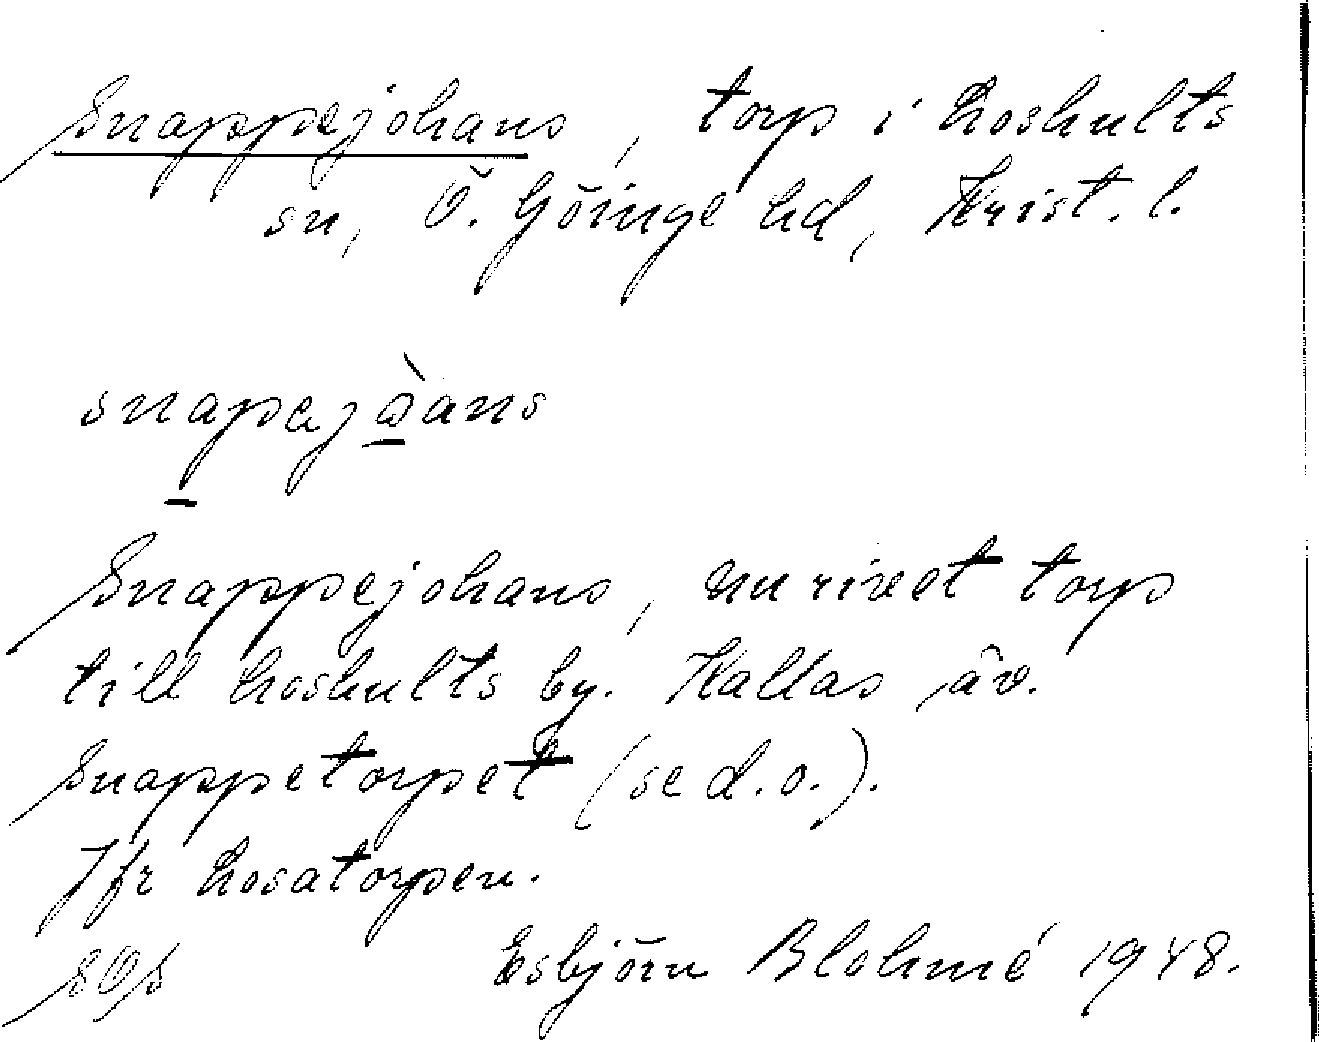 Snappejohans, torp i Loshults
sn, Ö. Göinge hd, Krist. l.
snapejòans
Snappejohans, nu rivet torp
till Loshults by. Kallas äv.
Snappetorpet (se d.o.).
Jfr Losatorpen.
SOS Esbjörn Blohmé 1948.